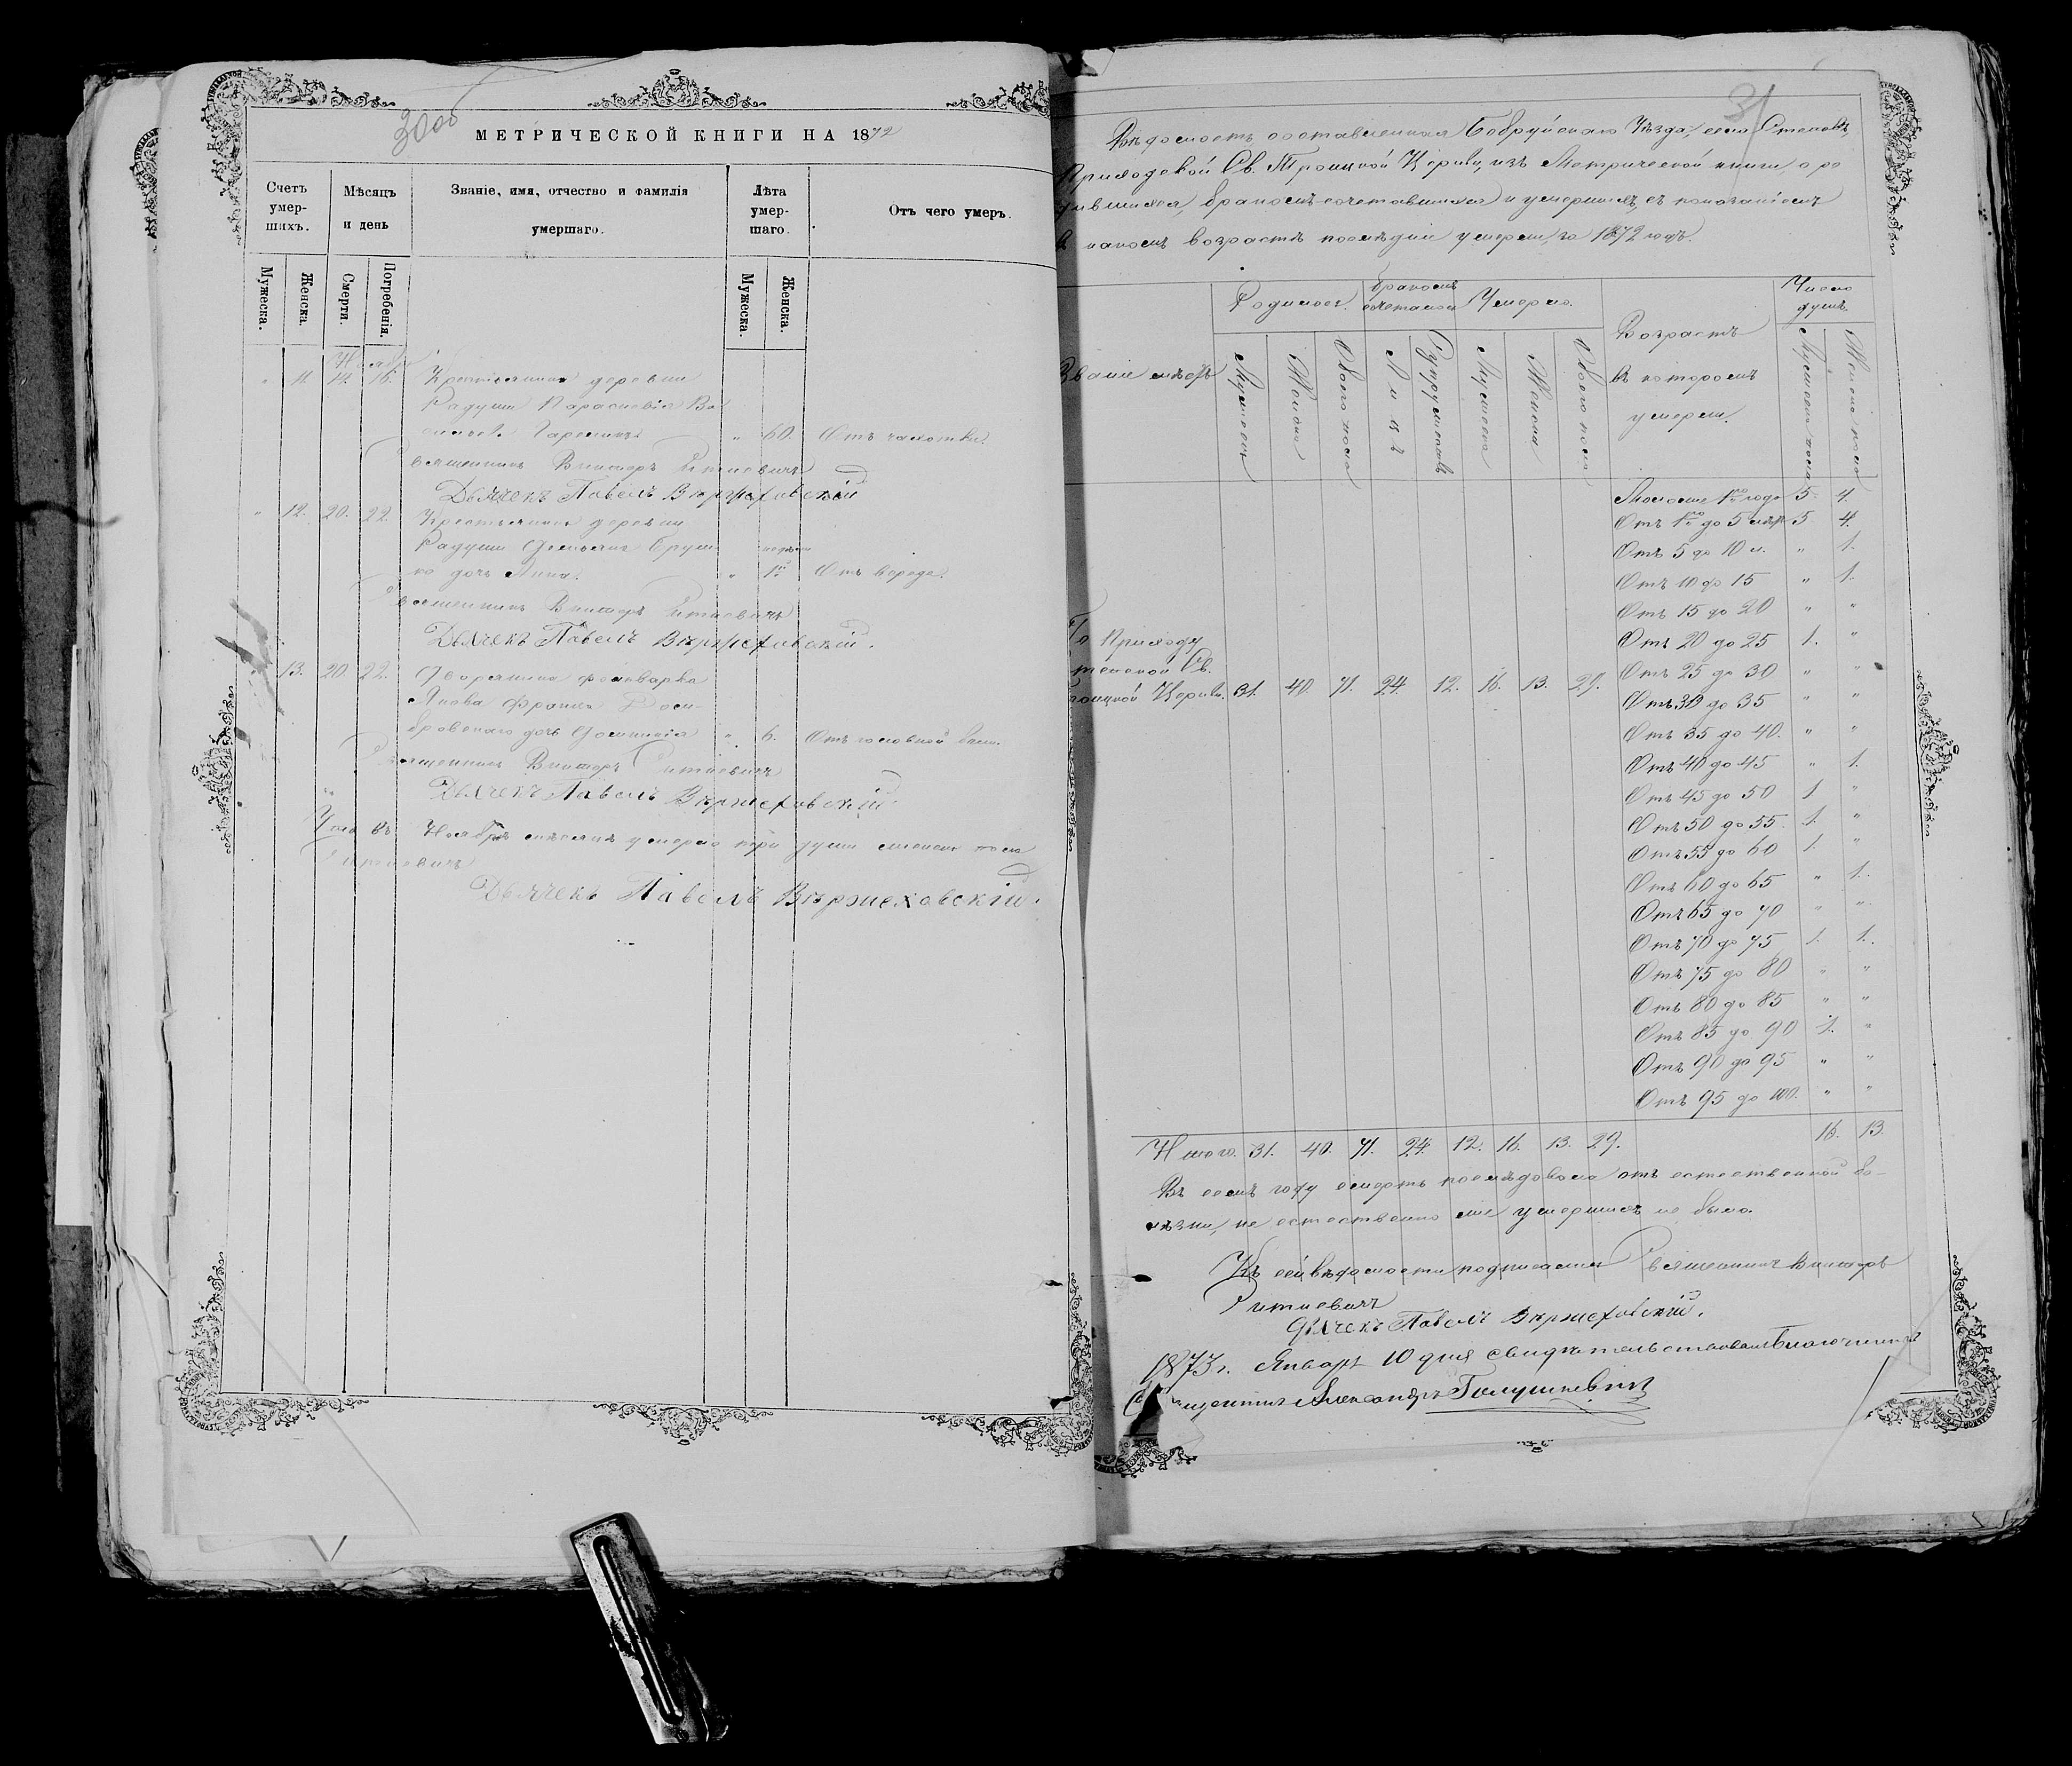 30об
МЕТРИЧЕСКОЙ КНИГИ НА 1872
Счетъ умер-шихъ.
Мѣсяцъ и день
Званіе, имя, отчество и фамилія умершаго.
Лѣта умер-шаго.
Отъ чего умеръ.
Мужеска.
Женска.
Смерти.
Погребенія.
Мужеска.
Женска.
Ноябр
" 11. 14. 16. Крестьянка деревни
Радуши Параскевія Ва
" 60. Отъ чахотки.
Священникъ Викторъ
Дьячекъ Павелъ Вержеховскій
" 12. 20. 22. Крестьянина деревни
Радуши
ко дочь Анна. " 1й Отъ вереда.
Священникъ Викторъ
Дьячекъ Павелъ Вержеховскій.
13. 20. 22. Дворянина фольварка
Янова Франца Дом-
бровскаго дочь " 6. Отъ головной боли.
Священникъ Викторъ
Дьячекъ Павелъ Вержеховскій.
Ноябрѣ мѣсяцѣ умерло три души женска пола
Дьячекъ Павелъ Вержеховскій.
31
Вѣдомость, составленная Бобруйскаго Уѣзда, села Степовъ,
Приходской Св. Троицкой Церкви, изъ Метрической книги, о ро
дившихся, бракомъ сочетавшихся и умершихъ, съ показаніемъ
въ какомъ возрастѣ послѣдніе умерли, за 1872 годъ.
Званіе мѣстъ
Родилось.
Бракомъ сочеталось
Умерло.
Возрастъ въ которомъ умерли.
Число душъ.
Мужеска
Женска
Обоего пола
Лицъ
Супружествъ
Мужеска
Женска
Обоего пола
Мужеска пола
Женска пола
Моложе 1го года 5. 4.
Отъ 1го до 5 лѣтъ 5 4.
Отъ 5 до 10 л. " 1.
Отъ 10 до 15 " 1.
Отъ 15 до 20 " "
По Приходу
Отъ 20 до 25 1. "
Св.
Отъ 25 до 30 " "
Троицкой Церкви. 31. 40. 71. 24. 12. 16. 13. 29.
Отъ 30 до 35 " "
Отъ 35 до 40. " "
Отъ 40 до 45 " 1.
Отъ 45 до 50 1 "
Отъ 50 до 55. 1. "
Отъ 55 до 60 1. "
Отъ 60 до 65 " 1.
Отъ 65 до 70 " "
Отъ 70 до 75 1. 1.
Отъ 75 до 80 " "
Отъ 80 до 85 " "
Отъ 85 до 90 1. "
Отъ 90 до 95 " "
Отъ 95 до 100. " "
Итого. 31. 40. 71. 24. 12. 16. 13. 29. 16. 13.
Въ семъ году смерть послѣдовала отъ естественной бо-
лѣзни, не естественно же умершихъ не было.
Къ сей вѣдомости подписались Священникъ Викторъ
Дьячекъ Павелъ Вержеховскій.
1873 г. Январ 10 дня свидѣтельствовалъ Благочинный
Священникъ Александръ